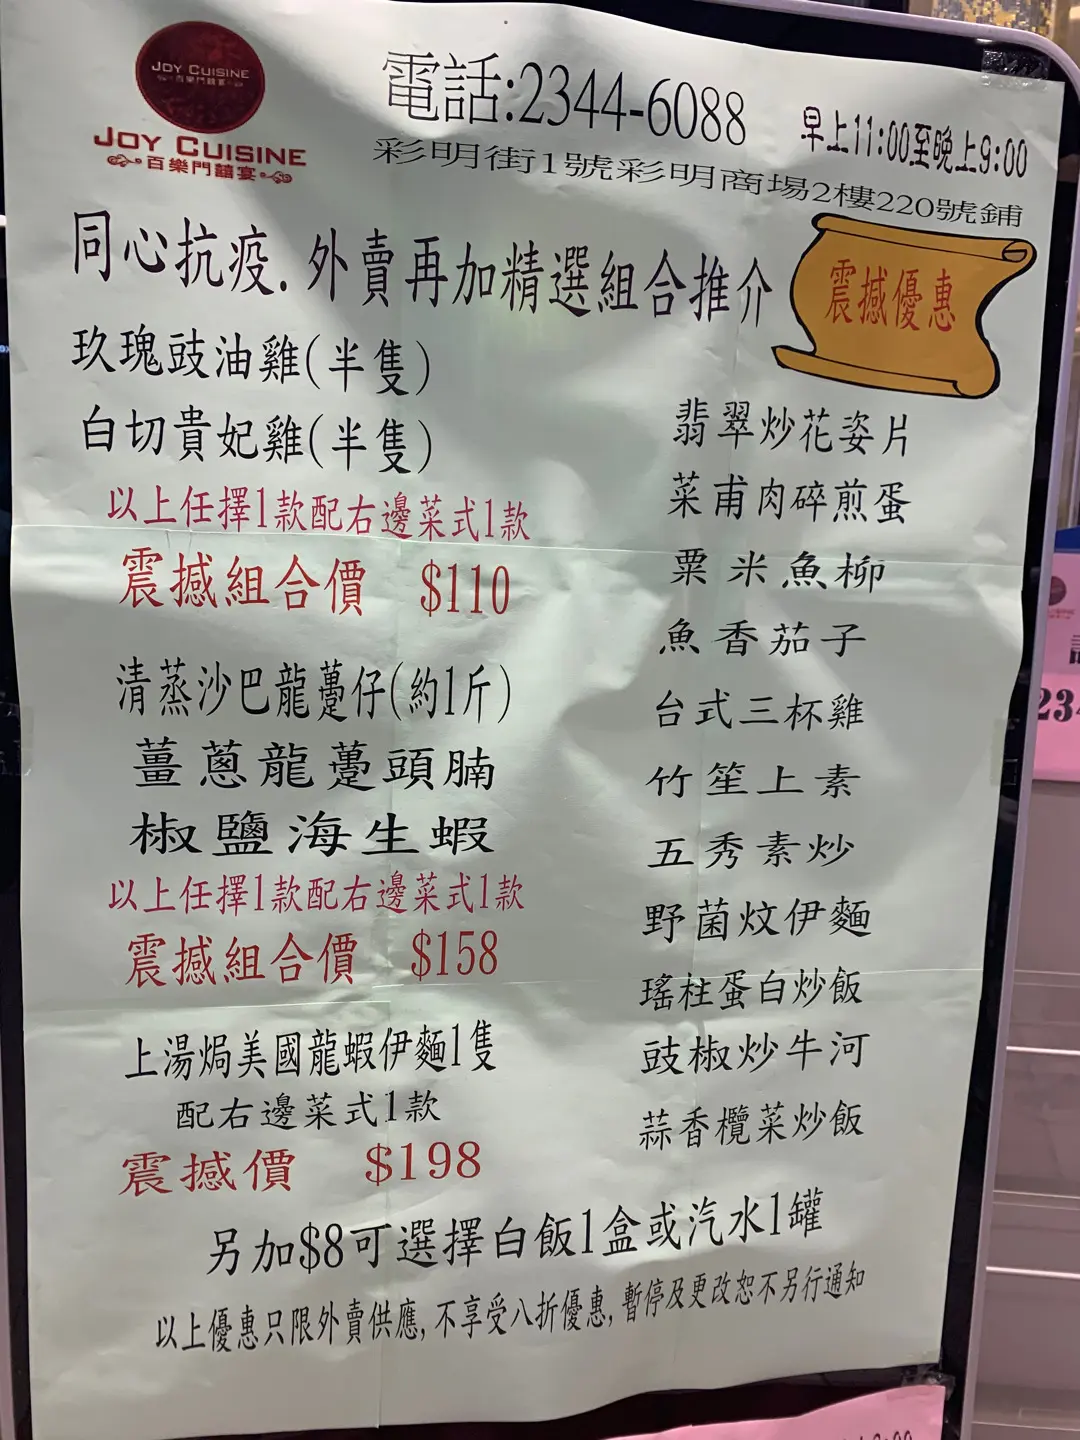 JOY CUISINE
百樂門囍宴
JOY CUISINE
百樂門囍宴
電話:2344-6088
早上11:00至晚上9:00
彩明街1號彩明商場2樓220號鋪
同心抗疫.外賣再加精選組合推介
震撼優惠
玫瑰豉油雞(半隻)
白切貴妃雞(半隻)
以上任擇1款配右邊菜式1款
震撼組合價 $110
清蒸沙巴龍躉仔(約1斤)
薑蔥龍躉頭腩
椒鹽海生蝦
以上任擇1款配右邊菜式1款
震撼組合價 $158
上湯焗美國龍蝦伊麵1隻
配右邊菜式1款
震撼價 $198
翡翠炒花姿片
菜甫肉碎煎蛋
粟米魚柳
魚香茄子
台式三杯雞
竹笙上素
五秀素炒
野菌炆伊麵
瑤柱蛋白炒飯
豉椒炒牛河
蒜香欖菜炒飯
另加$8可選擇白飯1盒或汽水1罐
以上優惠只限外賣供應,不享受八折優惠,暫停及更改恕不另行通知